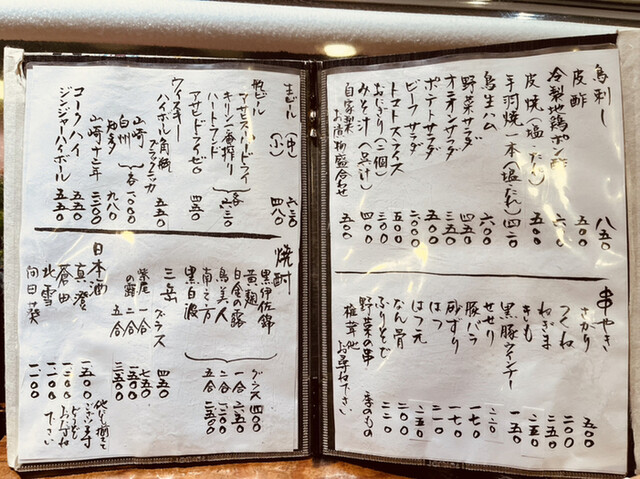 鳥刺し 八五〇
皮酢 五〇〇
冷製地鶏ポン酢 六〇〇
皮焼(塩・たれ) 五〇〇
手羽焼一本(塩たれ) 四二〇
鳥生ハム 六〇〇
野菜サラダ 四五〇
オニオンサラダ 三五〇
ポテトサラダ 五〇〇
ビーフサラダ 六〇〇
トマトスライス 五〇〇
おにぎり(二個) 三〇〇
みそ汁(具汁) 四〇〇
自家製お漬物盛合わせ 五〇〇
串やき
さかり 五〇〇
つくね 二〇〇
ねぎま 二五〇
きも 二五〇
黒豚ウインナー 一五〇
せせり
豚バラ 一七〇
砂ずり 一七〇
はつ 二一〇
はつ元 二五〇
なん骨
ぶりそで 二二〇
野菜の串 季のもの
椎茸他
お尋ね下さい
生ビール(中) 六三〇
(小) 四八〇
瓶ビール
アサヒスーパードライ
キリン一番搾り
ハートランド
各六三〇
アサヒドライゼロ 四五〇
ウィスキー
ハイボール角瓶
ブラックニッカ 五五〇
山崎
白州 各一〇〇〇
知多 九八〇
山崎十二年 二三〇〇
コークハイ 五五〇
ジンジャーハイボール 五五〇
焼酎
黒伊佐錦
黄麹
白金の露
鳥美人
南之方
黒白波
グラス 四〇〇
一合 六五〇
二合 一二〇〇
五合 二五〇〇
三岳 グラス 四五〇
紫尾の露 一合 七五〇
二合
五合
日本酒
真澄 一五〇〇
蒼田
北雪 一一〇〇
向日葵 一一〇〇
他にも揃えて
ございます
どうぞ
おたずね
下さい